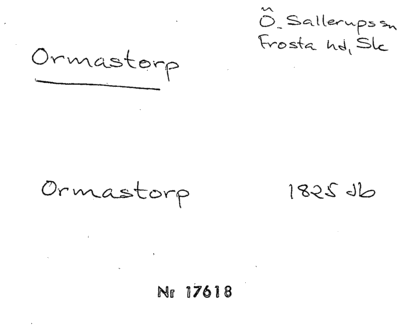 Ö. Sallerups sn
Frosta hd, Sk
Ormastorp
Ormastorp 1825 db
Nr 17618